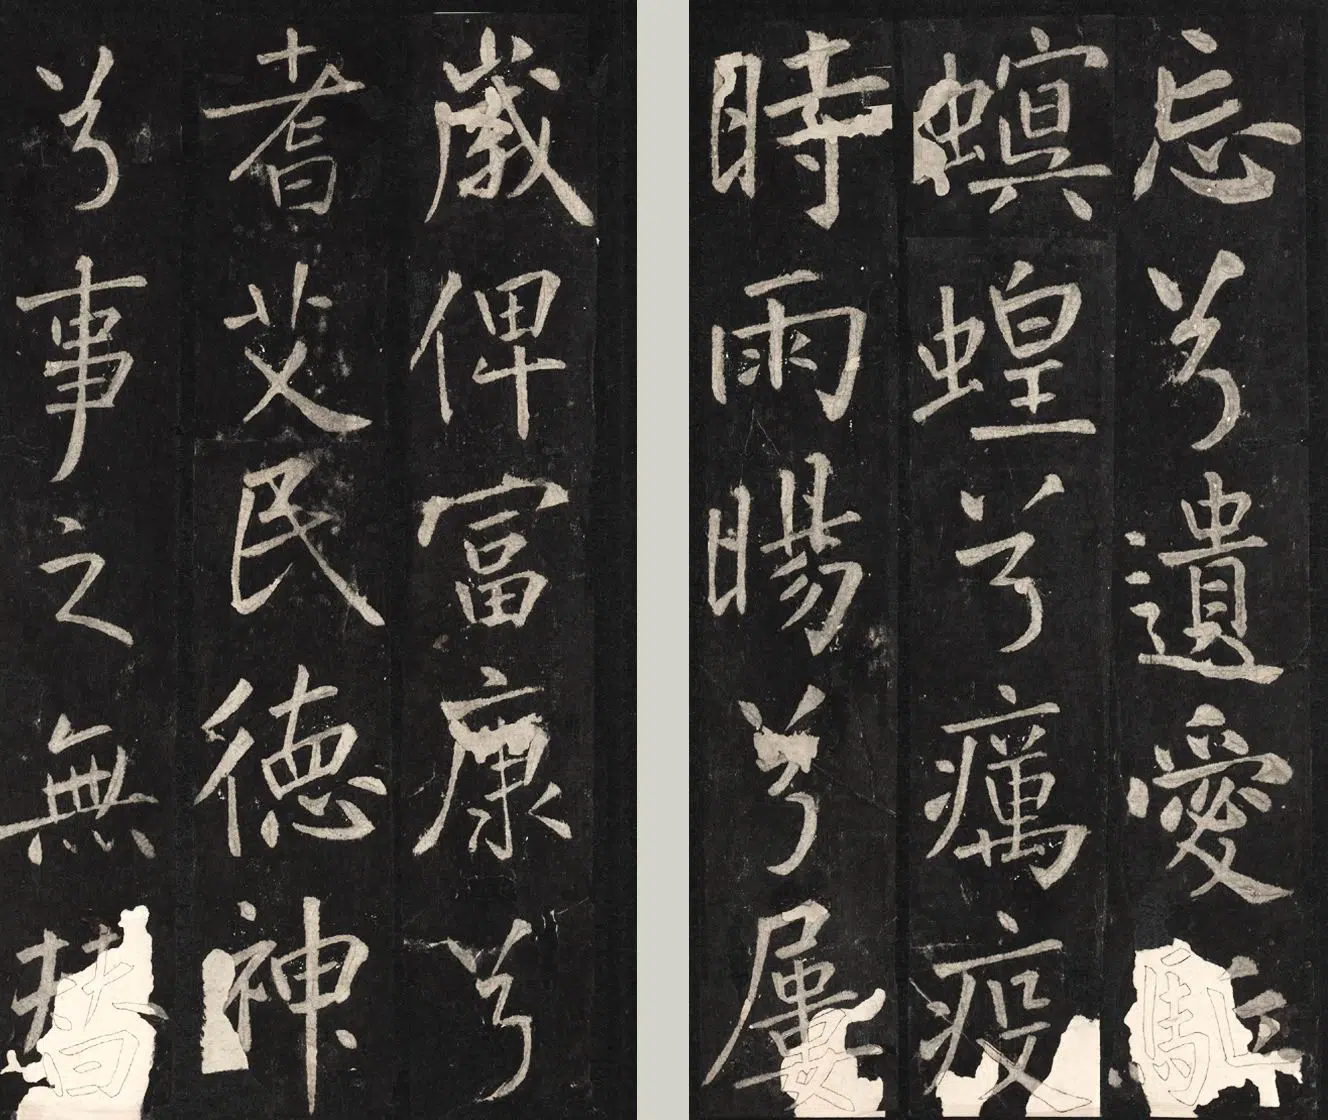 忘兮遺愛駈
螟蝗兮癘疫
時雨暘兮屢
歲俾富康兮
耆艾民德神
兮事之無替